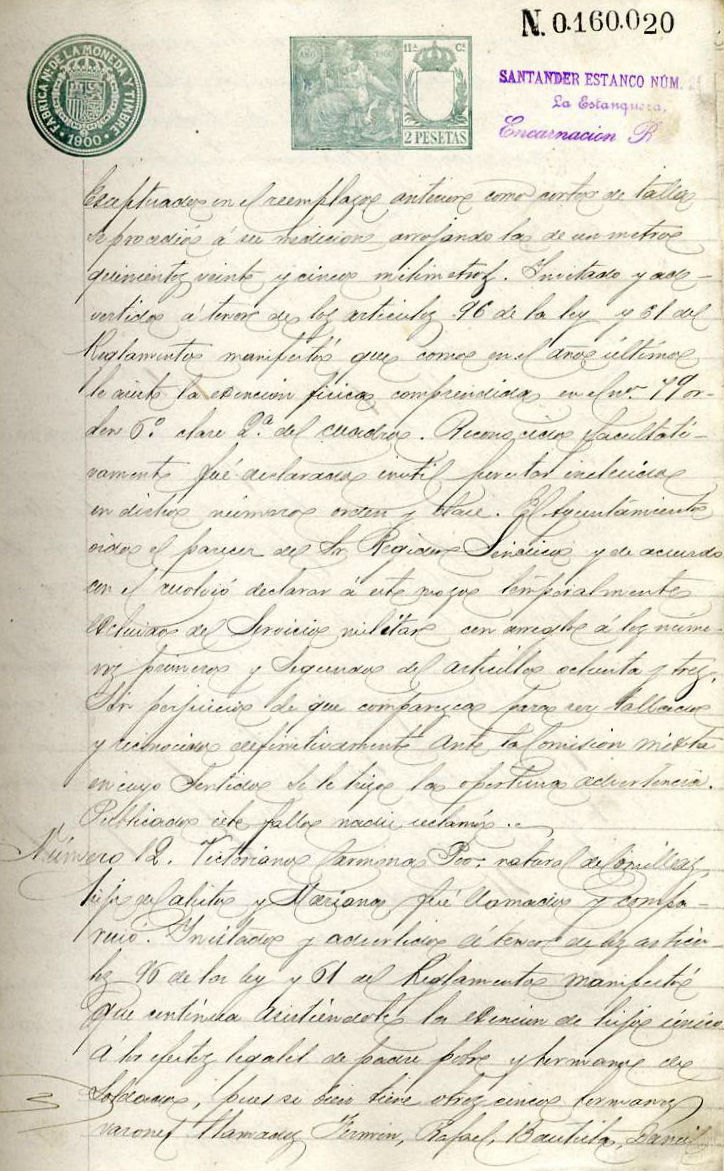 N. 0.160.020
FABRICA N. DE LA MONEDA Y TIMBRE
1900
11ª Cª
2 PESETAS
SANTANDER ESTANCO NÚM.
La Estanquera,
Encarnacion R
Esceptuado en el reemplazo anterior como corto de talla
se procedió á su medicion arrojando la de un metro
quinientos veinte y cinco milimetros. Invitado y ad-
vertido á tenor de los articulos 96 de la ley y 61 del
Reglamento manifestó que como en el año último
le asiste la esención fisica comprendida en el nº 79 or-
den 6º clase 2ª del cuadro. Reconocido facultati-
vamente fué declarado inutil por estar incluido
en dichos número orden y clase. El Ayuntamiento
oido el parecer del Sr. Regidor Síndico y de acuerdo
con el resolvió declarar á este mozo temporalmente
escluido del Servicio militar con arreglo á los núme-
ros primero y segundo del articulo ochenta y tres.
Sin perjuicio de que comparezca para ser tallado
y reconocido definitivamente ante la Comision mixta
en cuyo sentido se le hizo la oportuna advertencia.
Publicado este fallo nadie reclamó.
Número 12. Victoriano natural de
hijo de y Mariana fué llamado y compa-
reció. Invitado y advertido á tenor de los articu-
los 96 de la ley y 61 del Reglamento manifestó
que continua asistiendole la esencion de hijo único
á los efectos legales de padre pobre y hermano de
soldado, pues si bien tiene otros cinco hermanos
varones llamados Fermin, Rafael, Bautista, Daniel